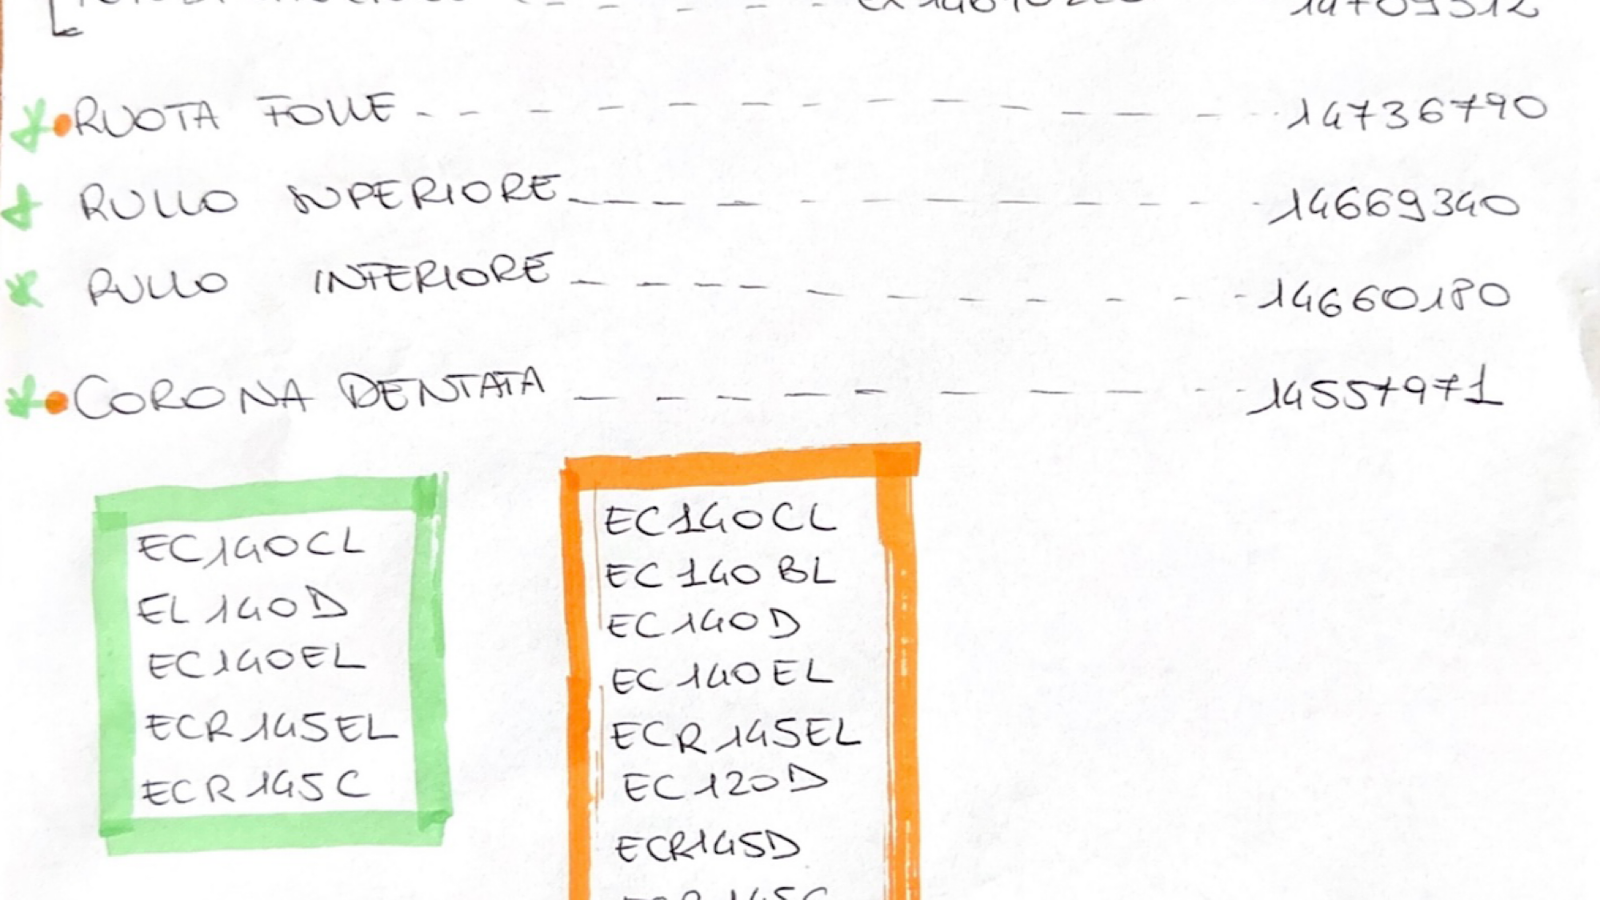 RUOTA FOLLE - - - - - - - - - - 14736790
RULLO SUPERIORE - - - - - - - - - - 14669340
RULLO INFERIORE - - - - - - - - - - 14660180
CORONA DENTATA - - - - - - - - - - 14557971
EC140CL
EL140D
EC140EL
ECR145EL
ECR145C
EC140CL
EC140BL
EC140D
EC140EL
ECR145EL
EC120D
ECR145D